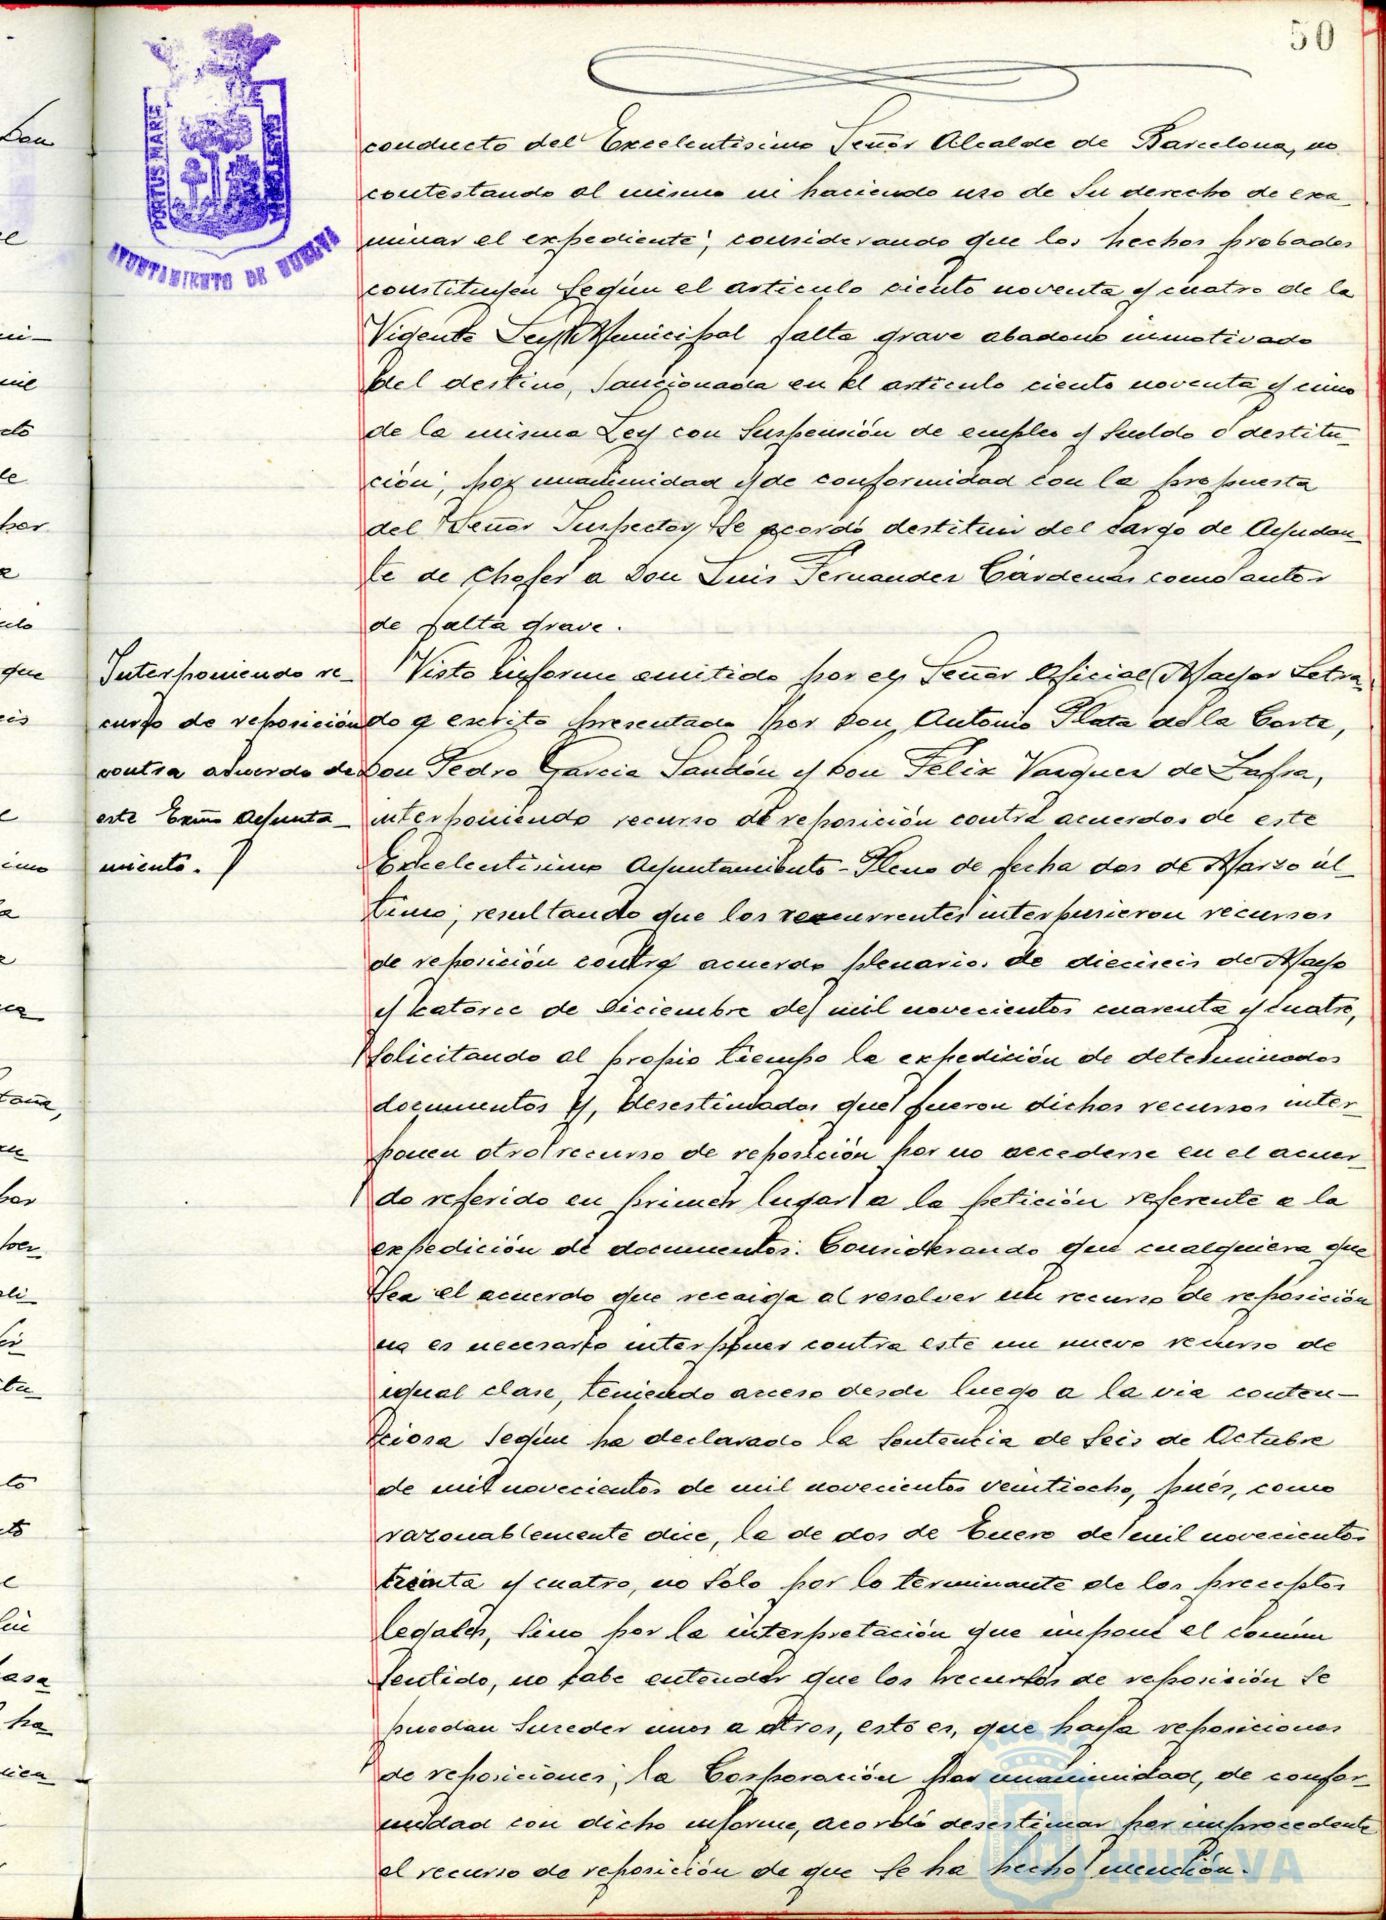 50
PORTUS MARIS
CUSTODIA
AYUNTAMIENTO DE HUELVA
conducto del Excelentisimo Señor Alcalde de Barcelona, no
contestando al mismo ni haciendo uso de su derecho de exa-
minar el expediente; considerando que los hechos probados
constituyen según el articulo ciento noventa y cuatro de la
Vigente Ley Municipal falta grave abadono inmotivado
del destino, sancionada en el articulo ciento noventa y cinco
de la misma Ley con suspensión de empleo y sueldo o destitu-
ción; por unanimidad y de conformidad con la propuesta
del Señor Inspector, se acordó destituir del cargo de Ayudan-
te de chofer a Don Luis Fernandez Cárdenas como autor
de falta grave.
Interponiendo re-
curso de reposición
contra acuerdo de
este Excmo Ayunta-
miento.
Visto informe emitido por el Señor Oficial Mayor Letra-
do y escrito presentado por Don Antonio Plata de la Corte,
Don Pedro Garcia Sandón y Don Felix Vazquez de Zafra,
interponiendo recurso de reposición contra acuerdos de este
Excelentisimo Ayuntamiento-Pleno de fecha dos de Marzo úl-
timo; resultando que los recurrentes interpusieron recursos
de reposición contra acuerdo plenario de dieciseis de Mayo
y catorce de Diciembre de mil novecientos cuarenta y cuatro,
solicitando al propio tiempo la expedición de determinados
documentos y, desestimados que fueron dichos recursos inter-
ponen otro recurso de reposición por no accederse en el acuer-
do referido en primer lugar a la petición referente a la
expedición de documentos: Considerando que cualquiera que
sea el acuerdo que recaiga al resolver un recurso de reposición
no es necesario interponer contra este un nuevo recurso de
igual clase, teniendo acceso desde luego a la via conten-
ciosa según ha declarado la Sentencia de seis de Octubre
de mil novecientos de mil novecientos veintiocho, pués, como
razonablemente dice, la de dos de Enero de mil novecientos
treinta y cuatro, no sólo por lo terminante de los preceptos
legales, sino por la interpretación que impone el común
sentido, no cabe entender que los recursos de reposición se
puedan suceder unos a otros, esto es, que haya reposiciones
de reposiciones; la Corporación por unanimidad, de confor-
midad con dicho informe, acordó desestimar por improcedente
el recurso de reposición de que se ha hecho mención.
Ayuntamiento de
HUELVA